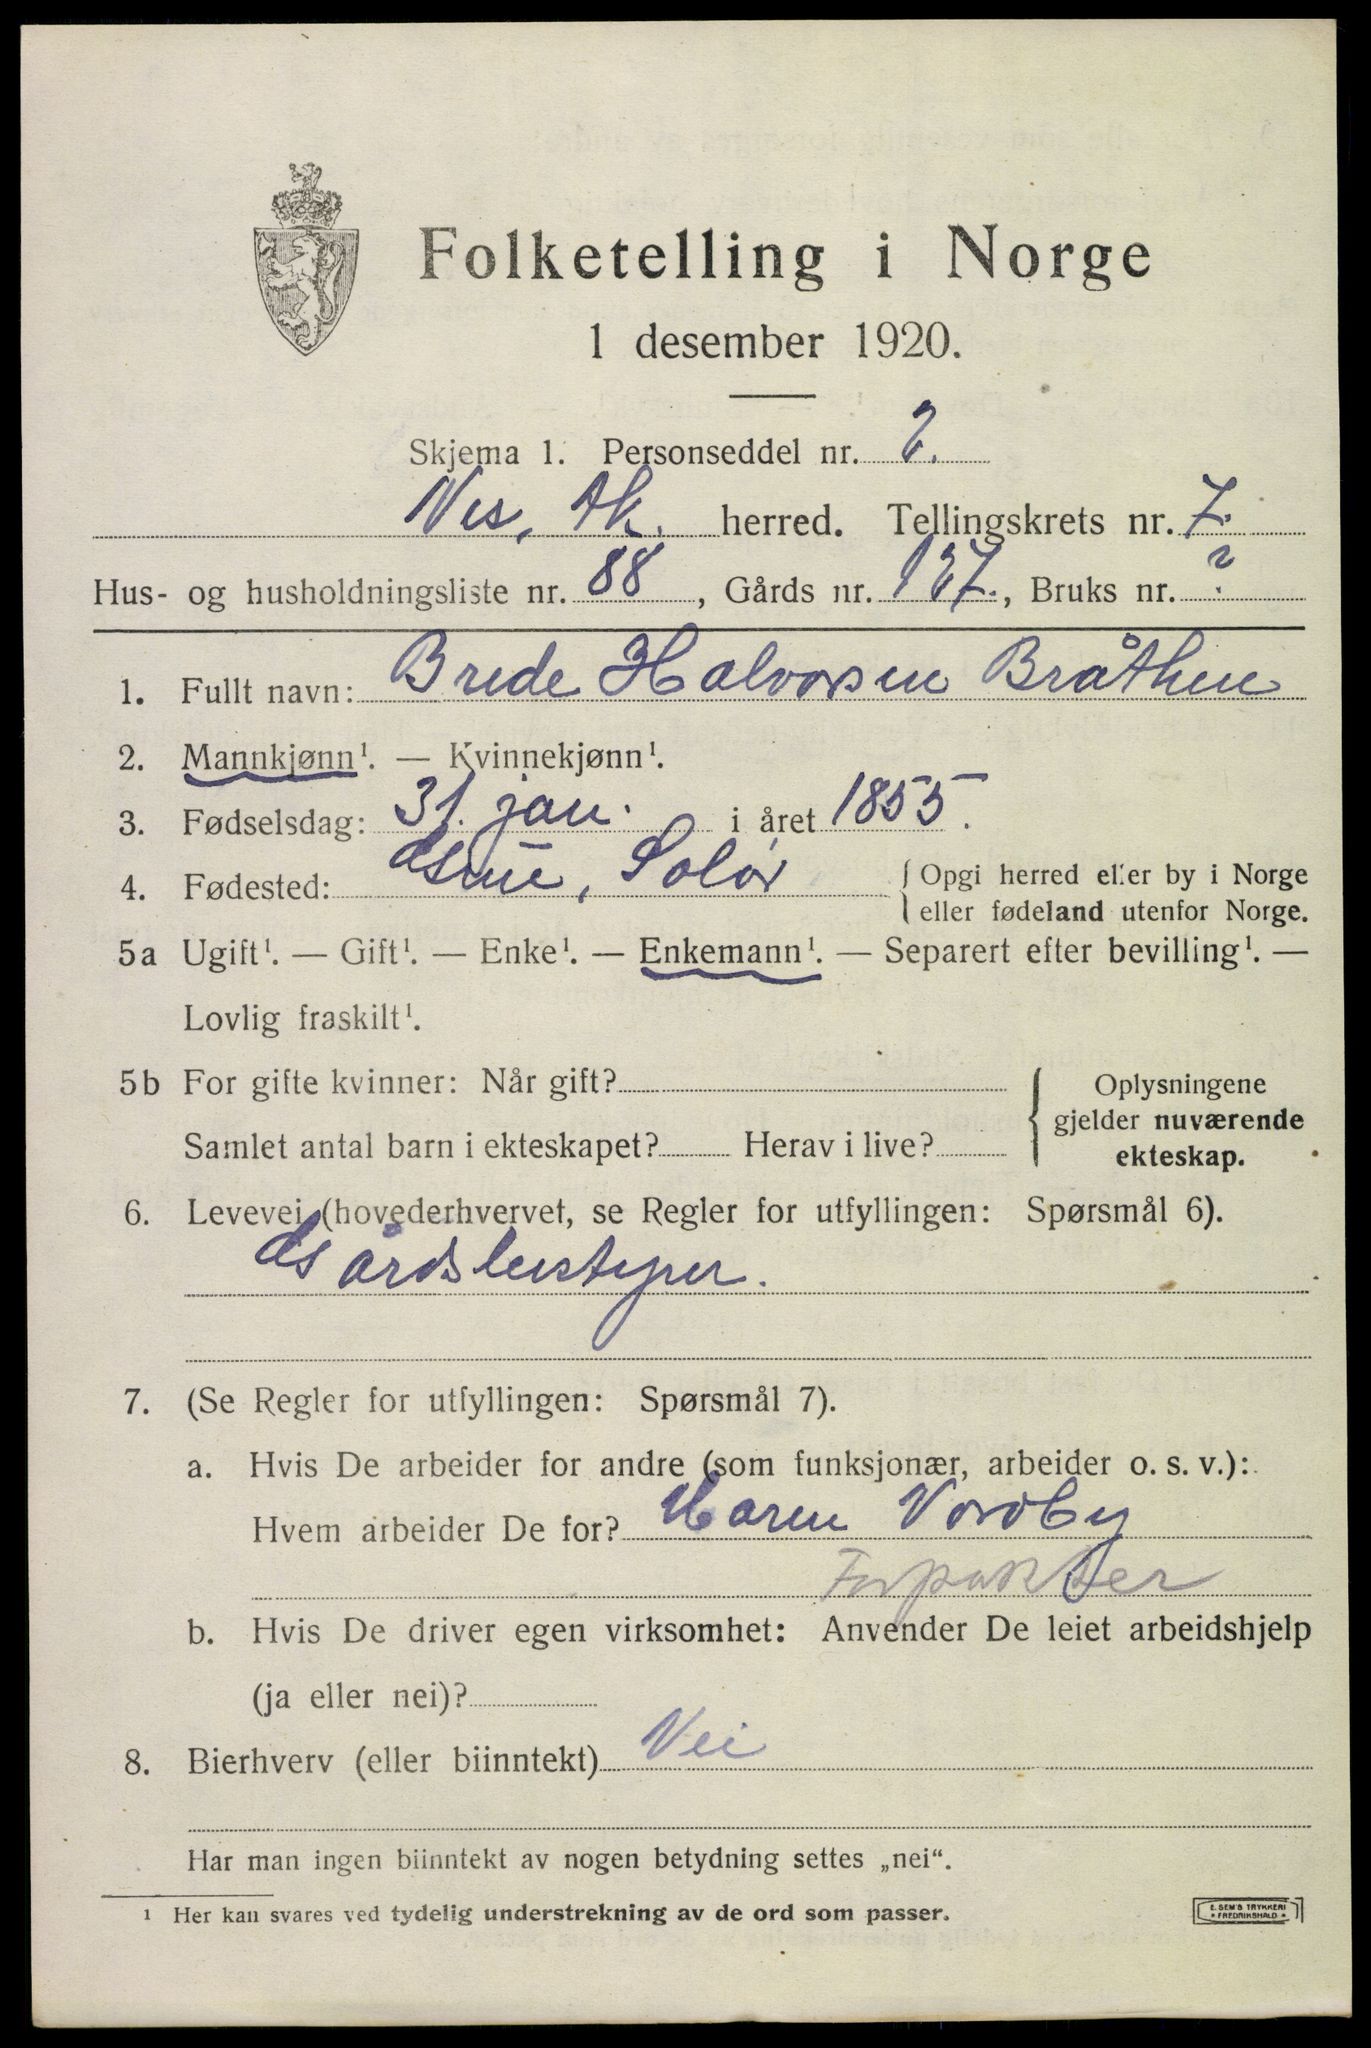 Folketelling i Norge
1 desember 1920.
Skjema 1. Personseddel nr. 2.
Nes, Ak. herred. Tellingskrets nr. 7.
Hus- og husholdningsliste nr. 88, Gårds nr. 127., Bruks nr. ?
1. Fullt navn: Brede Halvorsen Bråthen
2. Mannkjønn¹. — Kvinnekjønn¹.
3. Fødselsdag: 31. jan. i året 1855.
4. Fødested: Grue, Solør { Opgi herred eller by i Norge
eller fødeland utenfor Norge.
5a Ugift¹. — Gift¹. — Enke¹. — Enkemann¹. — Separert efter bevilling¹. —
Lovlig fraskilt¹.
5b For gifte kvinner: Når gift?
Samlet antal barn i ekteskapet? Herav i live?
{ Oplysningene
gjelder nuværende
ekteskap.
6. Levevei (hovederhvervet, se Regler for utfyllingen: Spørsmål 6).
Gårdsbestyrer.
7. (Se Regler for utfyllingen: Spørsmål 7).
a. Hvis De arbeider for andre (som funksjonær, arbeider o. s. v.):
Hvem arbeider De for? Maren Nordby
Forpakter
b. Hvis De driver egen virksomhet: Anvender De leiet arbeidshjelp
(ja eller nei)?
8. Bierhverv (eller biinntekt) Nei
Har man ingen biinntekt av nogen betydning settes „nei“.
¹ Her kan svares ved tydelig understrekning av de ord som passer.
E. SEM'S TRYKKERI
FREDRIKSHALD